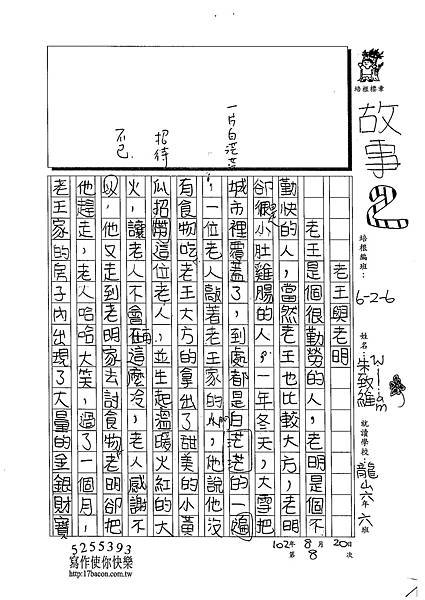 培根楷章
故事2
培根編班：6-2-6
姓名：朱致維 William
就讀學校：龍山六年六班
102年8月20日
第8次
老王與老明
老王是個很勤勞的人，老明是個不
勤快的人，當然老王也比較大方，老明
卻很小肚雞腸的人。一年冬天，大雪把
城市裡覆蓋了，到處都是白茫茫的一遍
，一位老人敲著老王家的門，他說他沒
有食物吃，老王大方的拿出了甜美的小黃
瓜招帶這位老人，並生起溫暖火紅的大
火，讓老人不會再這麼冷，老人感謝不
以，他又走到老明家去討食物，老明卻把
他趕走，老人哈哈大笑，過了一個月，
老王家的房子內出現了大量的金銀財寶
一片白茫茫
招待
不已
5255393
寫作使你快樂
http://17bacon.com.tw